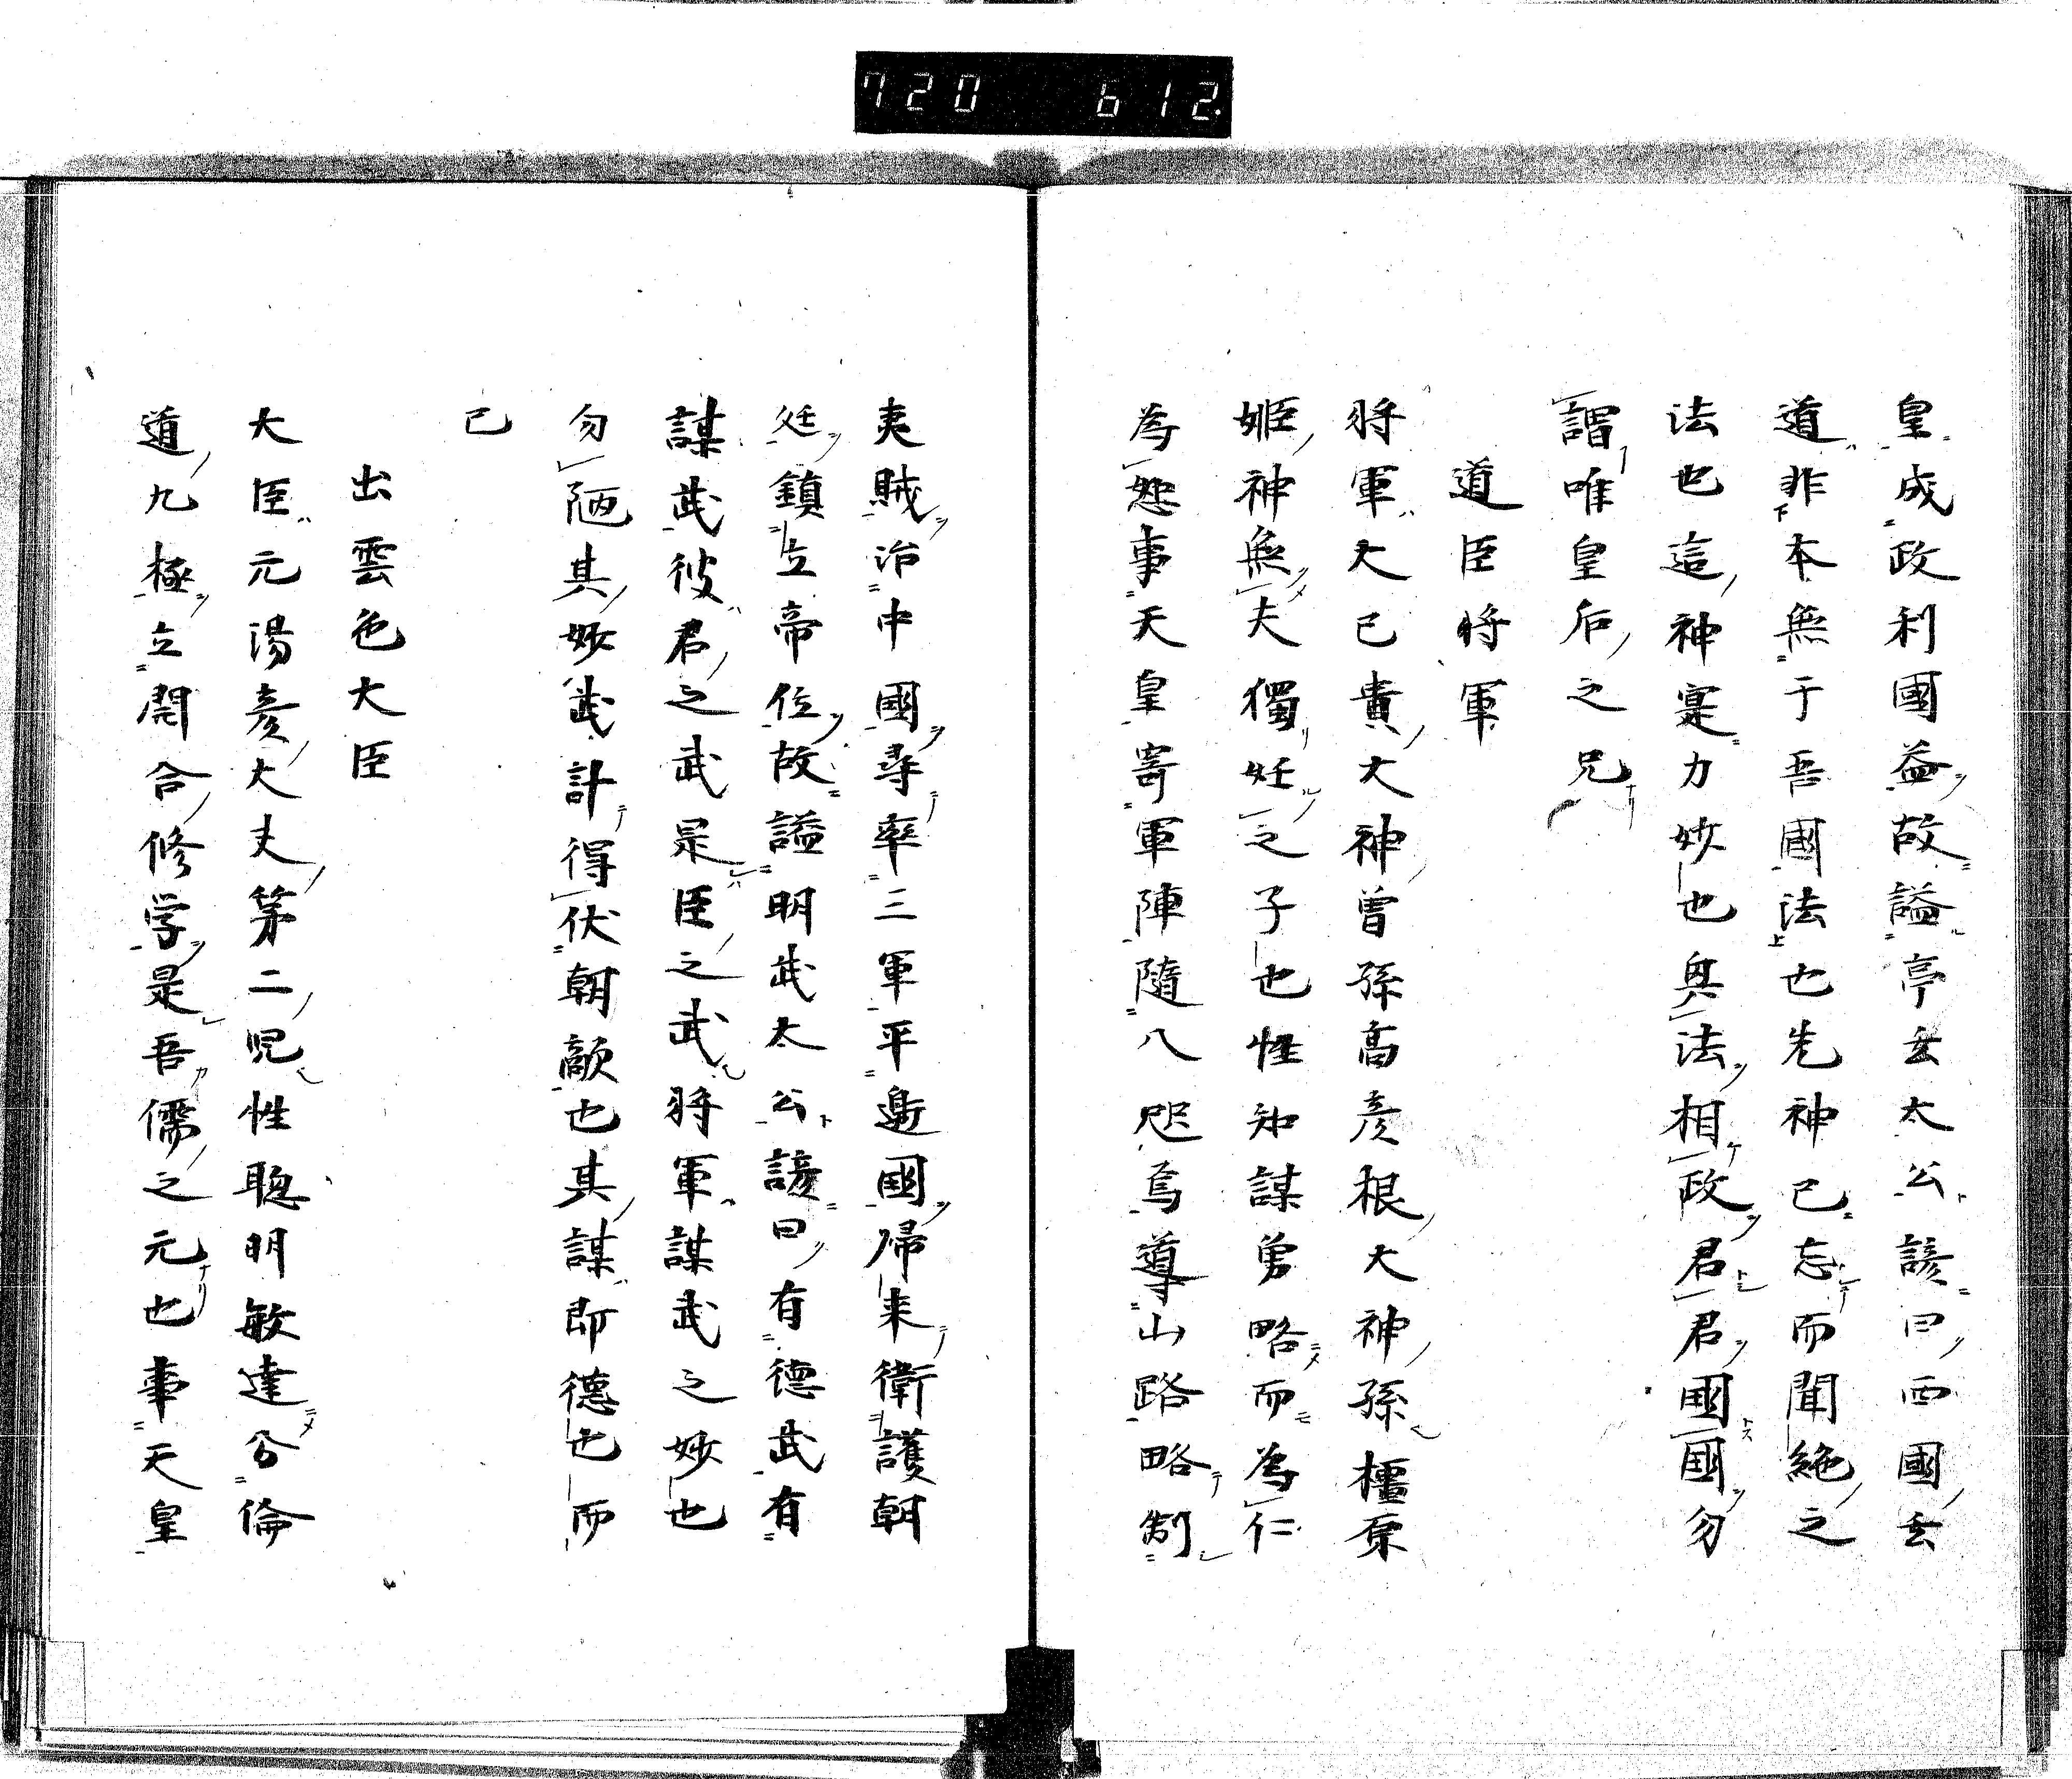 720 612.
皇成政利國益故謚亭玄太公諺曰西國玄
道非本無于吾國法也先神已忘而聞絶之
法也這神寔力妙也與法相政君君國國勿
謂唯皇后之兄
道臣将軍
将軍大已貴大神曽孫高彦根大神孫橿原
姫神無夫獨妊之子也性知謀勇略而為仁
為恕事天皇寄軍陣隨八咫烏導山路略制
夷賊治中國尋率三軍平邊國帰来衛護朝
廷鎮立帝位故謚明武太公諺曰有德武有
謀武彼君之武是臣之武将軍謀武之妙也
勿陋其妙武計得伏朝敵也其謀即德也而
已
出雲色大臣
大臣元湯彦大夫第二児性聰明敏達分倫
道九極立開合修学是吾儒之元也事天皇